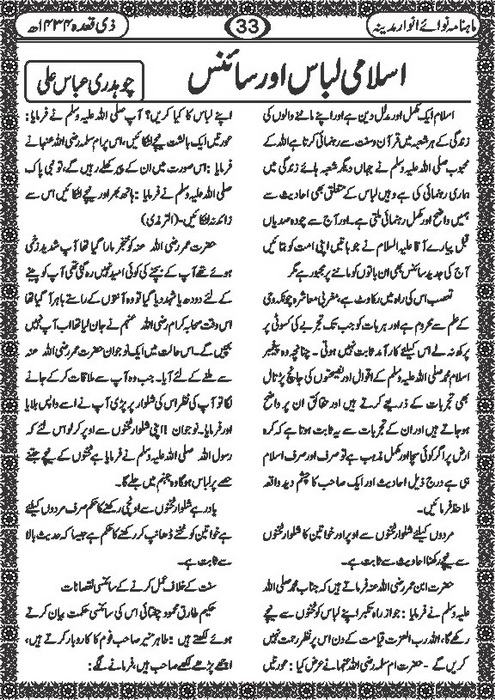 ماہنامہ نوائے انوار مدینہ
33
ذی قعدہ ۱۴۳۴ھ
اسلامی لباس اور سائنس
چوہدری عباس علی
اسلام ایک مکمل اور مدلل دین ہے اور اپنے ماننے والوں کی
زندگی کے ہر شعبہ میں قرآن و سنت سے رہنمائی کرتا ہے اللہ کے
محبوب صلی اللہ علیہ وسلم نے جہاں دیگر شعبہ ہائے زندگی میں
ہماری رہنمائی کی ہے وہیں لباس کے متعلق بھی احادیث سے
ہمیں واضح اور مکمل رہنمائی ملتی ہے۔ اور آج سے چودہ صدیاں
قبل پیارے آقا علیہ السلام نے جو باتیں اپنی امت کو بتائیں
آج کی جدید سائنس بھی ان باتوں کو ماننے پر مجبور ہے مگر
تعصب اس کی راہ میں رکاوٹ ہے، مغربی معاشرہ چونکہ وحی
کے علم سے محروم ہے اور ہر بات کو جب تک تجربے کی کسوٹی پر
پرکھ نہ لے اس کیلئے کارآمد ثابت نہیں ہوتی۔ چنانچہ وہ پیغمبر
اسلام محمد صلی اللہ علیہ وسلم کے اقوال اور نصیحتوں کی جانچ پڑتال
بھی تجربات کے ذریعے کرتے ہیں اور حقائق ان پر واضح
ہوجاتے ہیں اور ان کے تجربات سے یہ ثابت ہوتا ہے کہ کرہ
ارض پر اگر کوئی سچا اور مکمل مذہب ہے تو صرف اور صرف اسلام
ہی ہے درج ذیل احادیث اور ایک صاحب کا چشم دید واقعہ
ملاحظہ فرمائیں۔
مردوں کیلئے شلوار ٹخنوں سے اوپر اور خواتین کا شلوار ٹخنوں
سے نیچے رکھنا احادیث سے ثابت ہے۔
حضرت ابن عمر رضی اللہ عنہ فرماتے ہیں کہ جناب محمد صلی اللہ
علیہ وسلم نے فرمایا : جو از راہ تکبر اپنے لباس کو ٹخنوں سے نیچے
رکھے گا، اللہ رب العزت قیامت کے دن اس پر نظر رحمت نہیں
کریں گے۔ حضرت ام سلمہ رضی اللہ عنہا نے عرض کیا : عورتیں
اپنے لباس کا کیا کریں؟ آپ صلی اللہ علیہ وسلم نے فرمایا :
عورتیں ایک بالشت نیچے لٹکائیں، اس پر ام سلمہ رضی اللہ عنہا نے
فرمایا : اس صورت میں ان کے پیر کھلے رہیں گے، تو نبی پاک
صلی اللہ علیہ وسلم نے فرمایا : ہاتھ بھر اور نیچے لٹکائیں اس سے
زائد نہ لٹکائیں۔ (الترمذی)
حضرت عمر رضی اللہ عنہ کو خنجر مارا گیا تھا آپ شدید زخمی
ہوئے تھے آپ کے بچنے کی کوئی امید نہیں رہ گئی تھی آپ کو پینے
کے لئے دودھ یا شہد دیا گیا تو وہ آنتوں کے راستے باہر آ گیا تھا
اس وقت صحابہ کرام رضی اللہ عنہم نے جان لیا تھا اب آپ نہیں
بچیں گے۔ اس حالت میں ایک نوجوان حضرت عمر رضی اللہ عنہ
سے ملنے کے لئے آیا۔ جب وہ آپ سے ملاقات کرکے جانے
لگا تو آپ کی نظر اس کی شلوار پر پڑی آپ نے اسے واپس بلایا
اور فرمایا۔ نوجوان ! اپنی شلوار ٹخنوں سے اوپر کر لو اس لئے کہ
رسول اللہ صلی اللہ علیہ وسلم نے فرمایا ہے ٹخنوں کے نیچے جتنے
حصے پر لباس ہوگا وہ جہنم میں جلے گا۔
یاد رہے شلوار ٹخنوں سے اونچی رکھنے کا حکم صرف مردوں کیلئے
ہے خواتین کو ٹخنے ڈھانپ کر رکھنے کا حکم ہے جیسا کہ حدیث بالا
سے ثابت ہے۔
سنت کے خلاف عمل کرنے کے سائنسی نقصانات
حکیم طارق محمود چغتائی اس کی سائنسی حکمت بیان کرتے
ہوئے لکھتے ہیں : طاہر منیر صاحب فوم کا کاروبار کرتے ہیں،
اچھے پڑھے لکھے ہیں، فرمانے لگے :